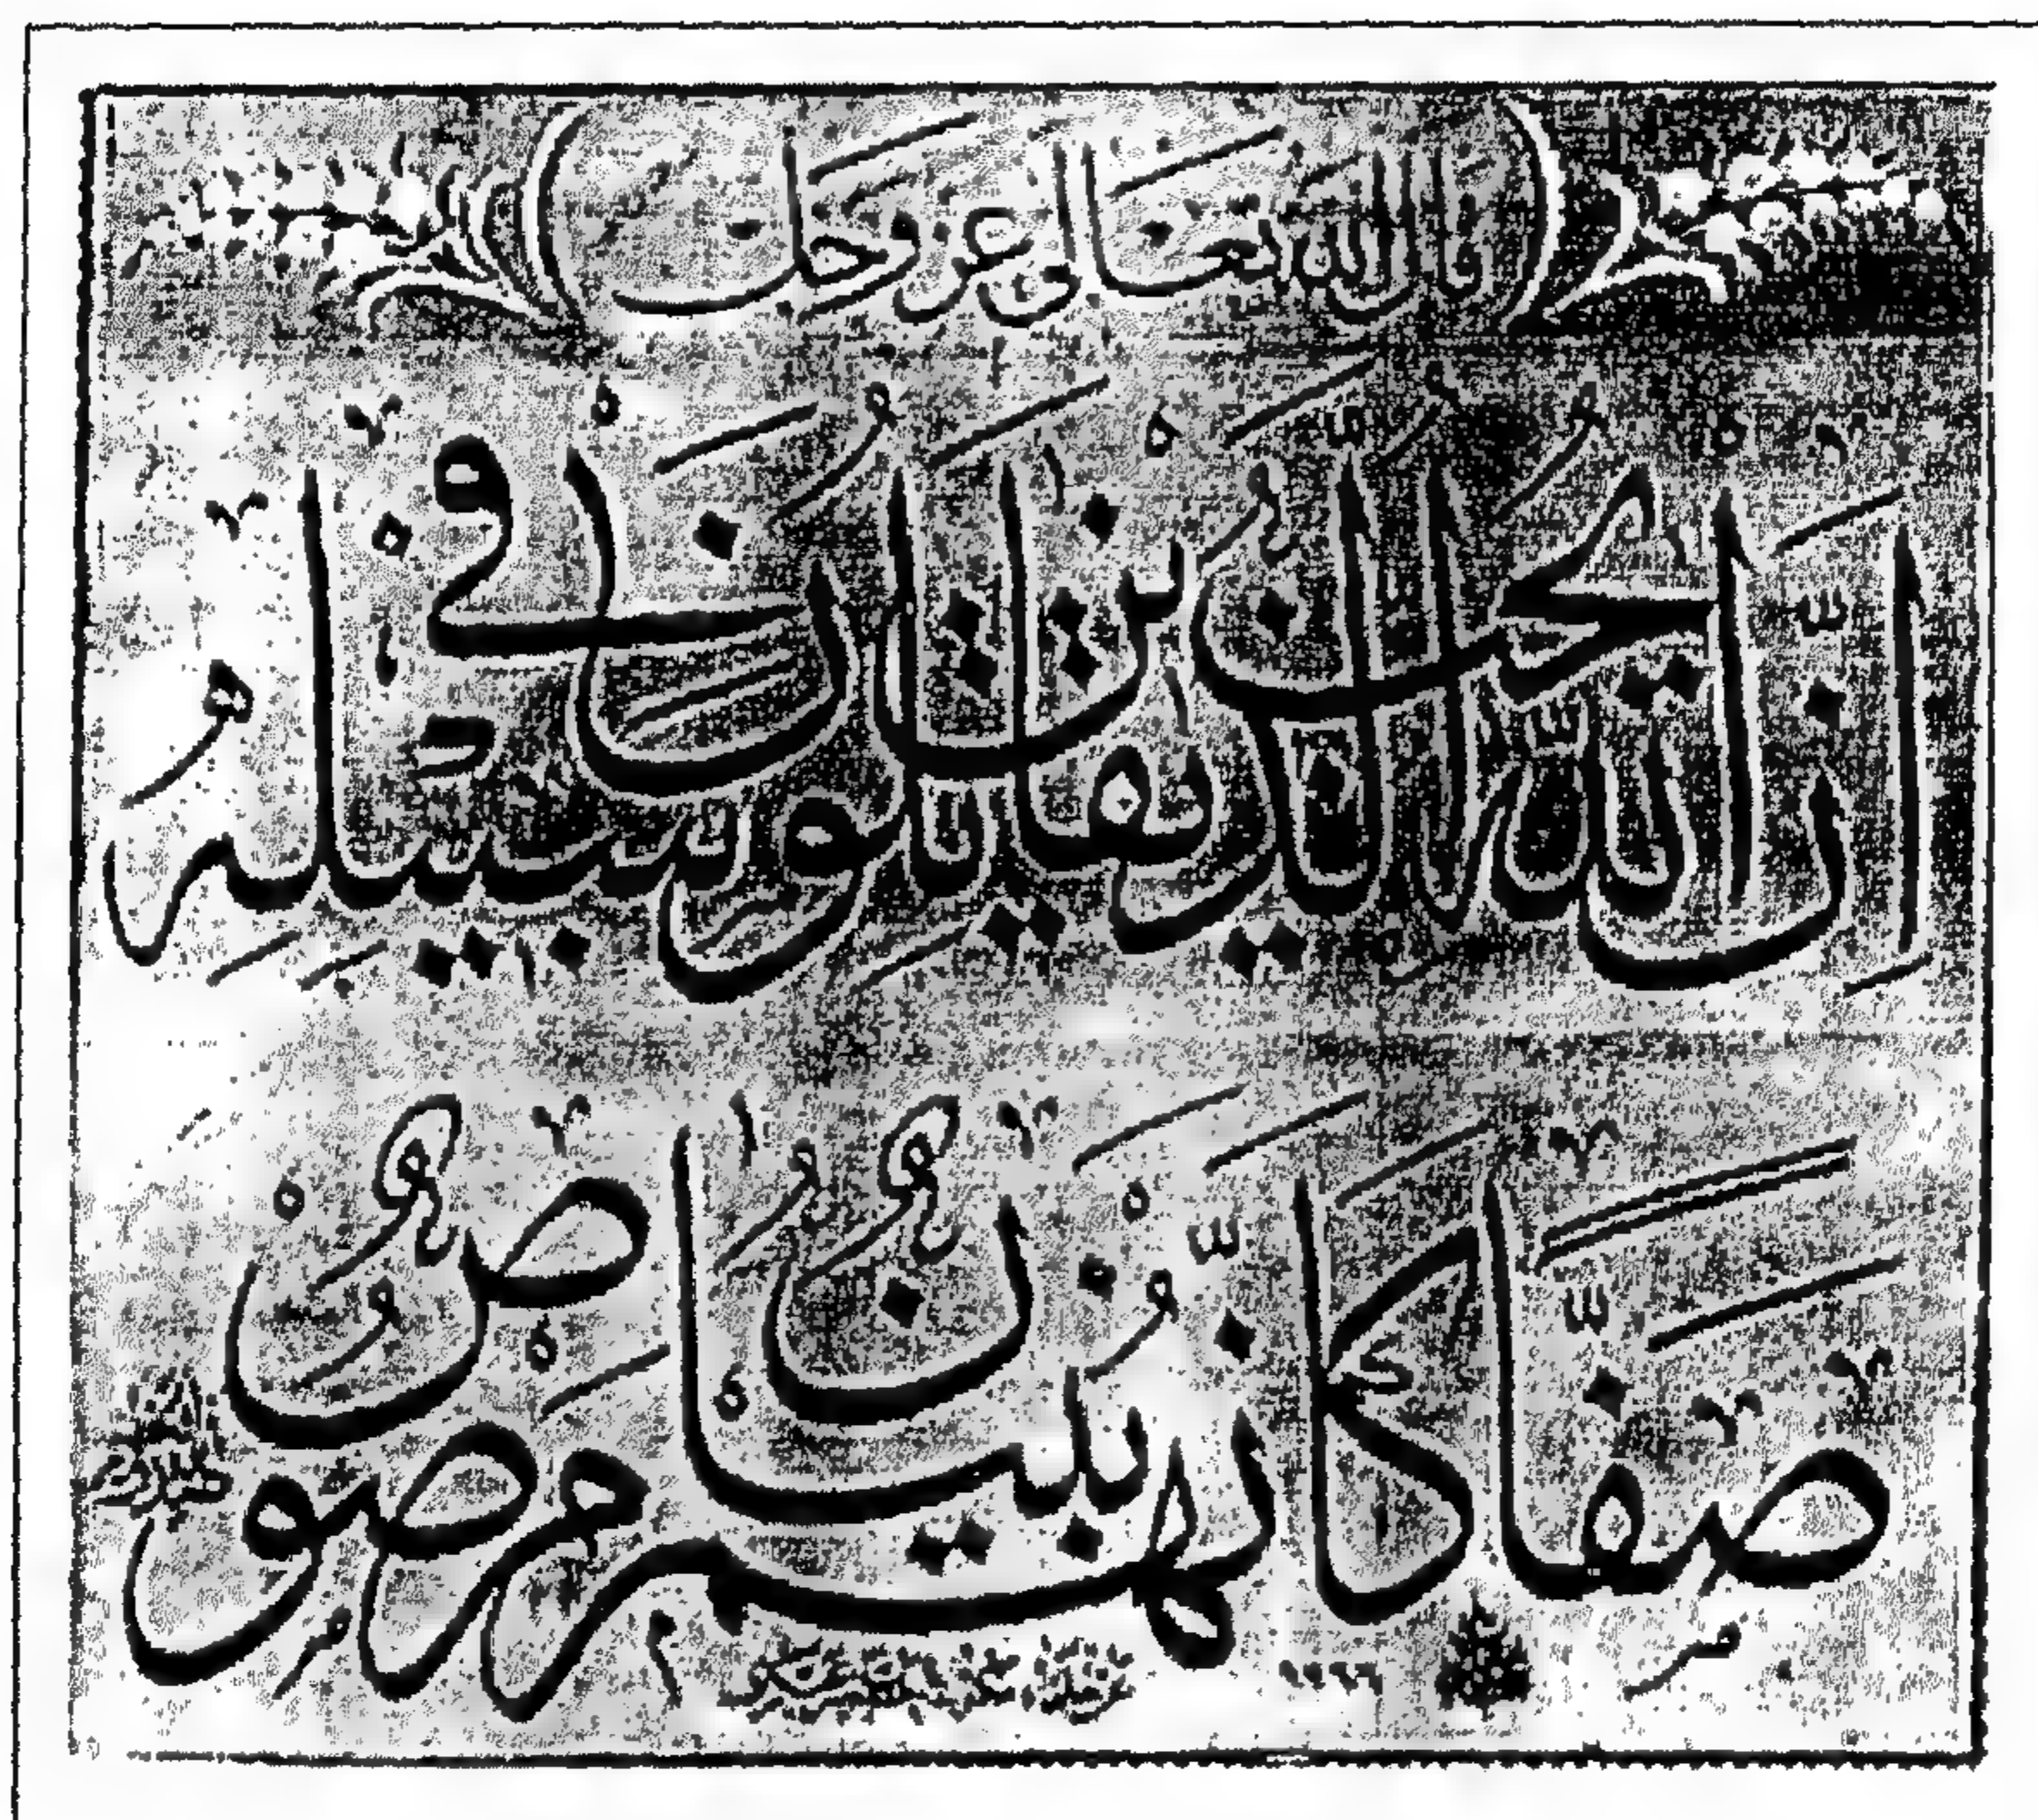 قال الله تعالى عز وجل
إِنَّ اللّٰهَ يُحِبُّ الَّذِينَ يُقَاتِلُونَ فِي سَبِيلِهِ
صَفًّا كَأَنَّهُمْ بُنْيَانٌ مَرْصُوصٌ